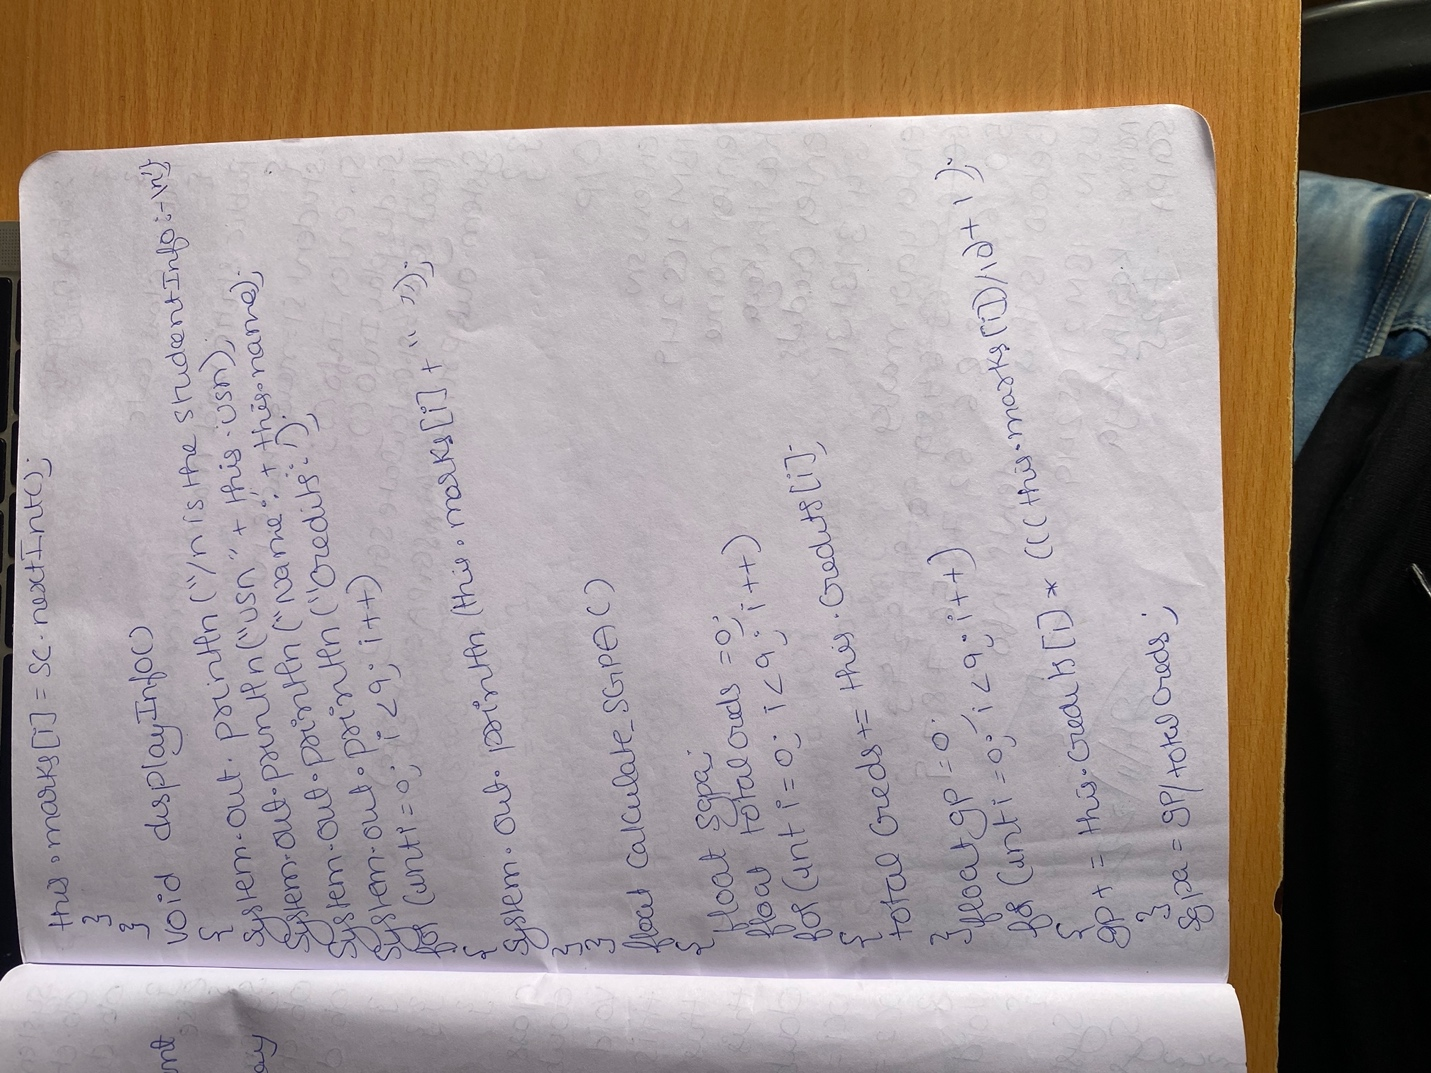 this.marks[i] = sc.nextInt();
}
}
void displayInfo()
{
System.out.println("/n is the studentInfo:-\n");
System.out.println("USN" + this.usn);
System.out.println("Name:" + this.name);
System.out.println("Credits:");
System.out.println
for (int i=0; i<9; i++)
{
System.out.println(this.marks[i] + " ");
}
}
float calculate_SGPA()
{
float sgpa;
float total creds =0;
for (int i=0; i<9; i++)
{
total creds += this.credits[i];
}
float gp =0;
for (int i=0; i<9; i++)
{
gp += this.credits[i] * (((this.marks[i])/10)+1);
}
sgpa = gp/total creds;